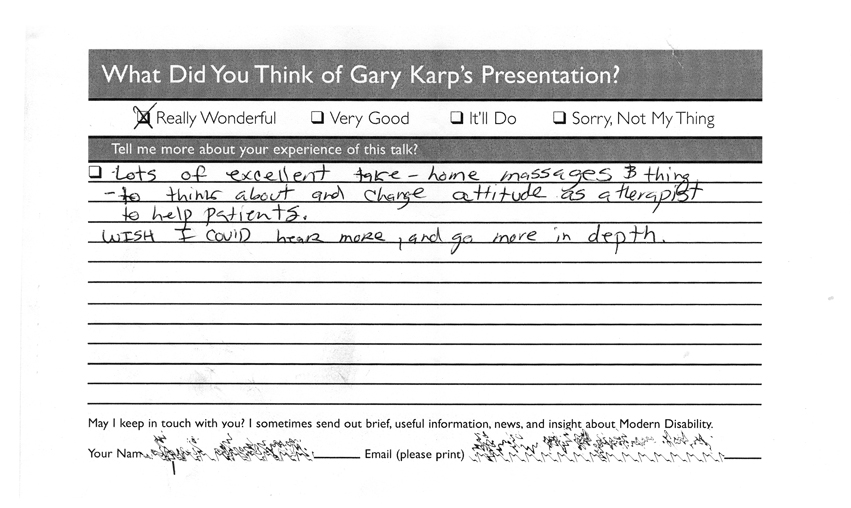 What Did You Think of Gary Karp's Presentation?
Really Wonderful Very Good It'll Do Sorry, Not My Thing
Tell me more about your experience of this talk?
Lots of excellent take-home massages & thing
- to think about and change attitude as a therapist
to help patients.
WISH I COULD hear more, and go more in depth.
May I keep in touch with you? I sometimes send out brief, useful information, news, and insight about Modern Disability.
Your Name Email (please print)